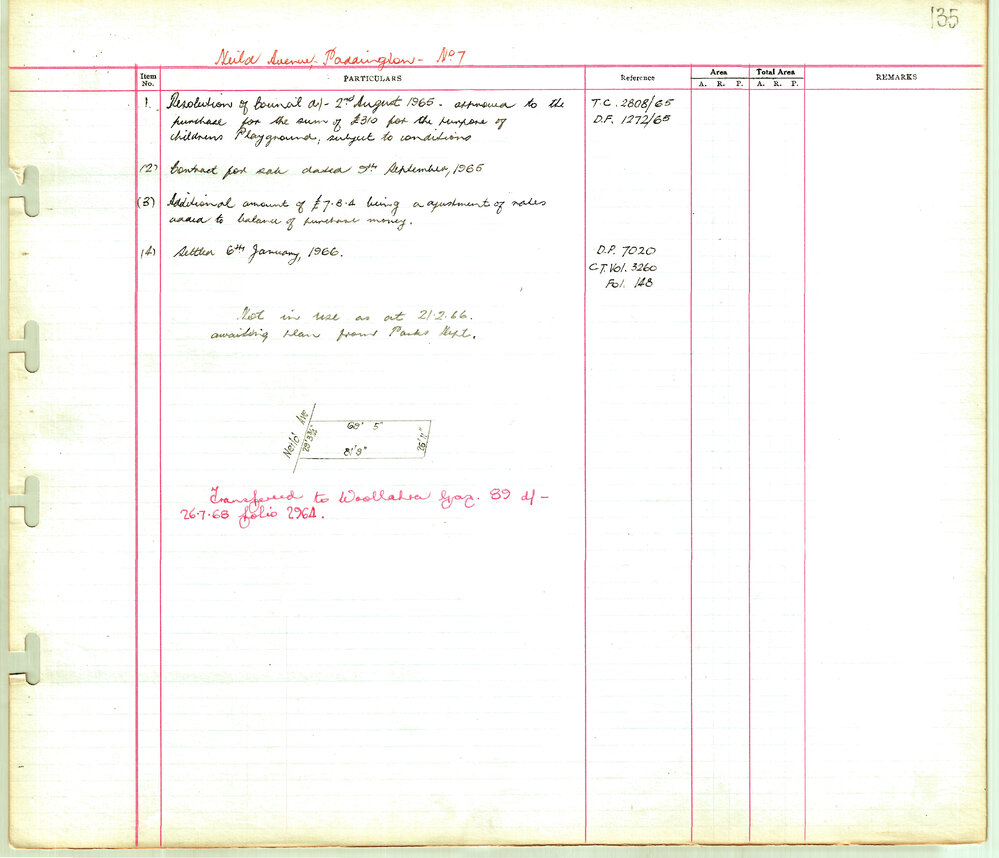 135
Neild Avenue, Paddington - No 7
Item No.
PARTICULARS
Reference
Area
A. R. P.
Total Area
A. R. P.
REMARKS
1. Resolution of Council d/- 2nd August 1965 - approved to the
purchase for the sum of £310 for the purpose of
childrens Playground, subject to conditions
T.C. 2808/65
D.P. 1272/65
(2) Contract for sale dated 9th September, 1965
(3) Additional amount of £7.8.4 being a ajustment of rates
added to balance of purchase money.
(4) Settled 6th January, 1966.
D.P. 7020
C.T. Vol. 3260
Fol. 148
Not in use as at 21.2.66.
awaiting plan from Parks Dept.
Neild Ave
29' 3½"
69' 5"
81' 9"
26' 11"
Transferred to Woollahra Gaz. 89 d/-
26.7.68 folio 2964.